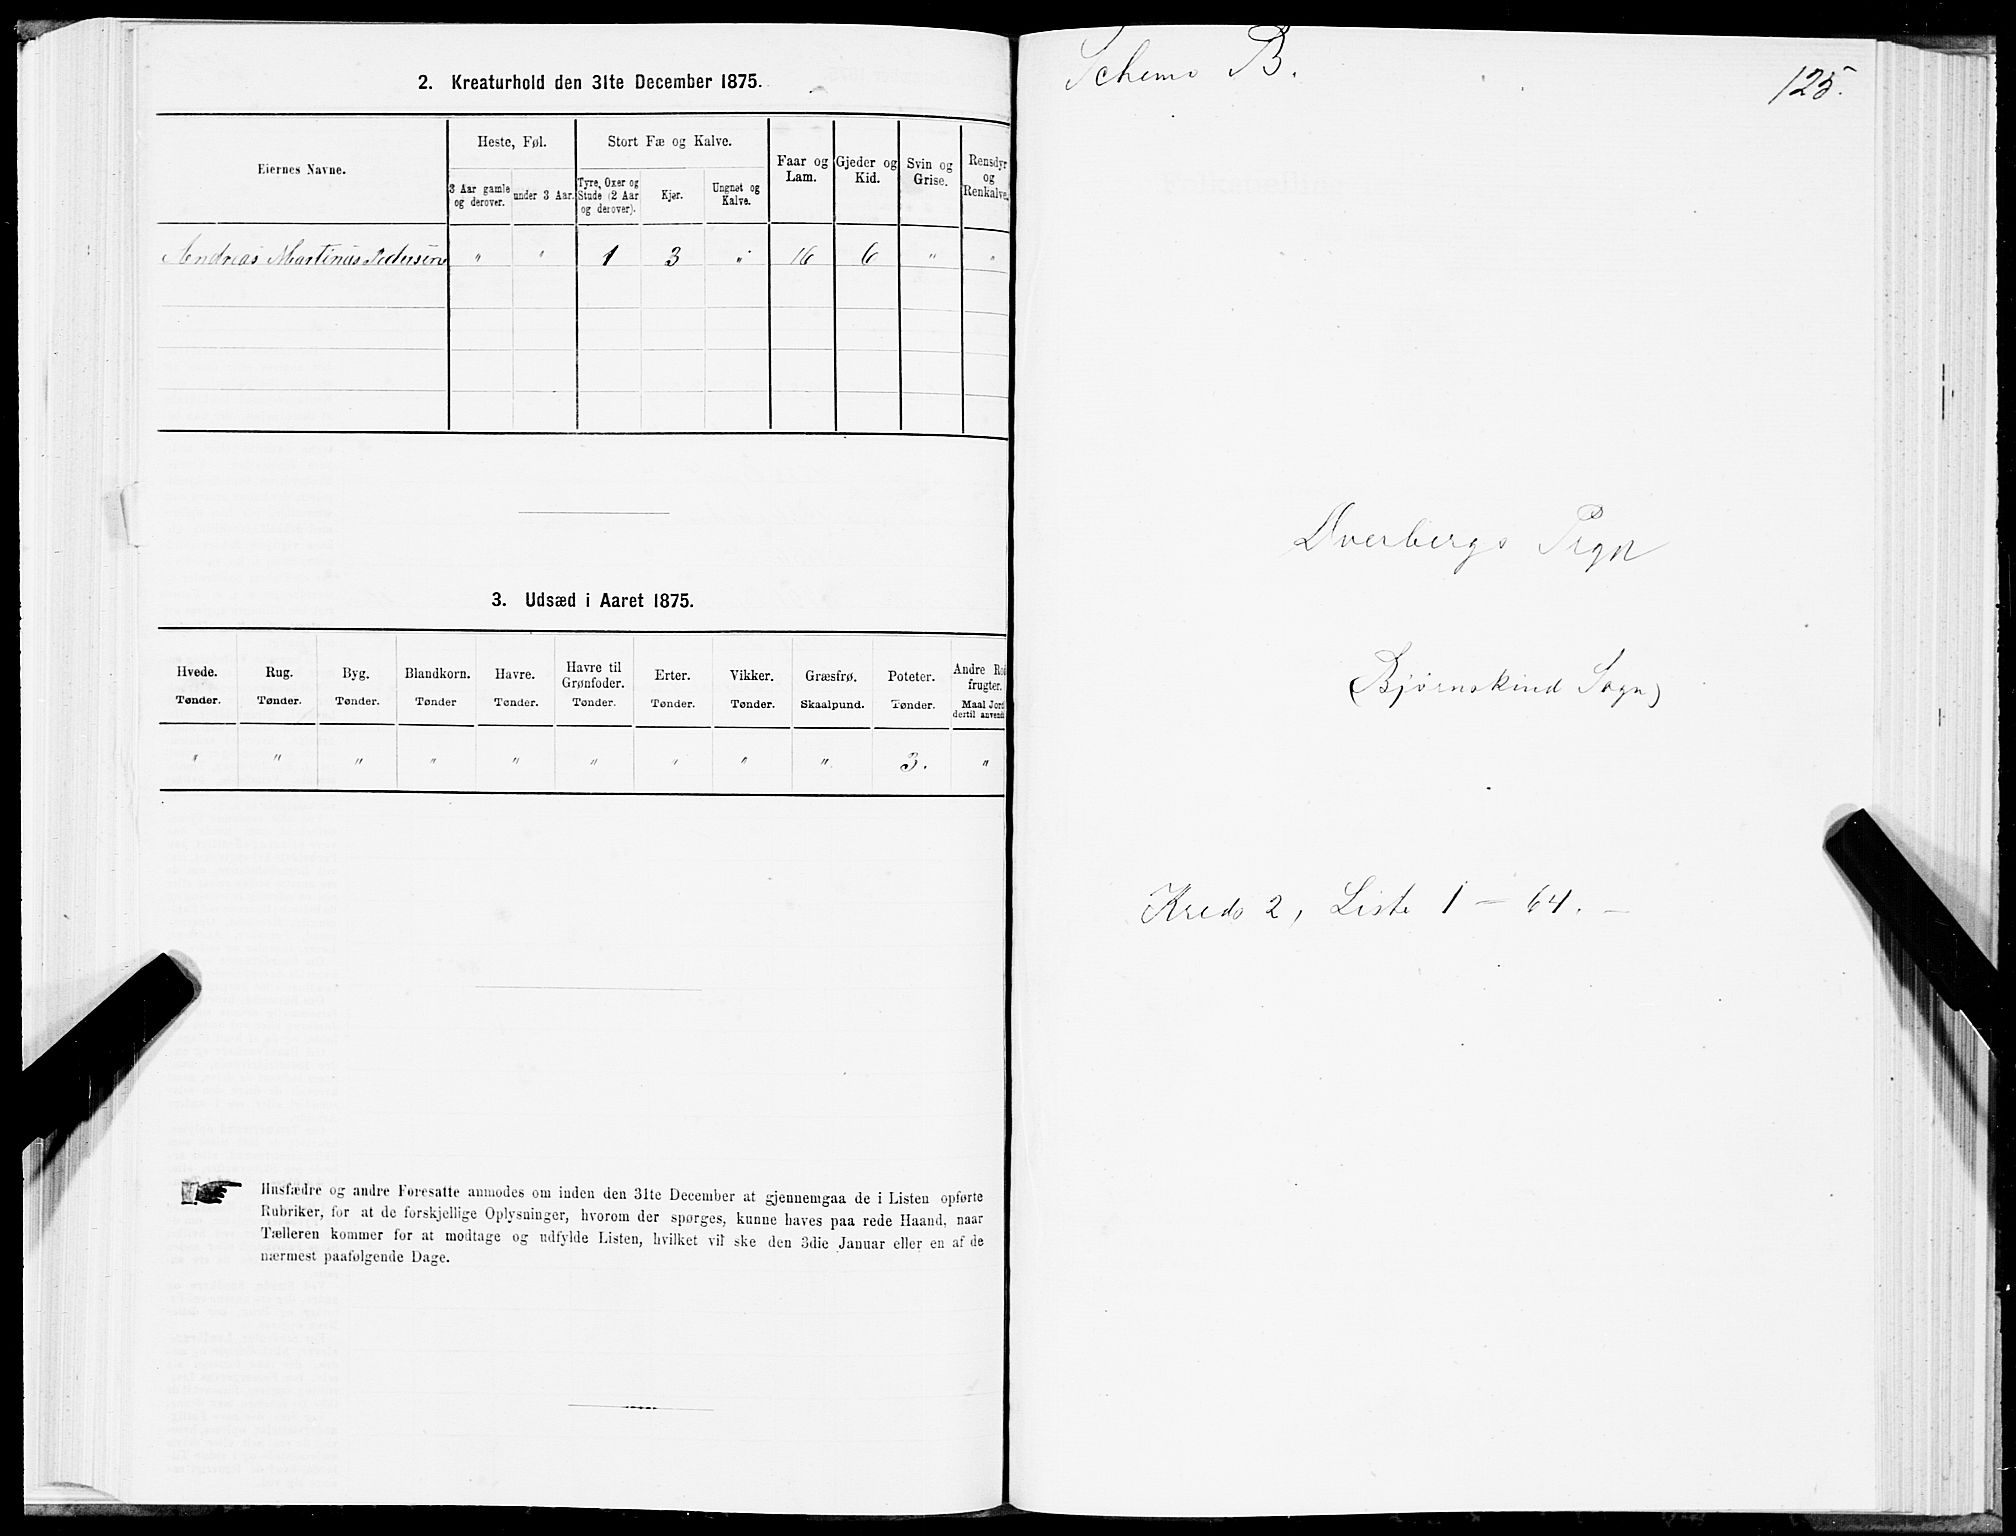 2. Kreaturhold den 31te December 1875.
Eiernes Navne.
Heste, Føl.
Stort Fæ og Kalve.
Faar og Lam.
Gjeder og Kid.
Svin og Grise.
Rensdyr og Renkalve.
3 Aar gamle og derover.
under 3 Aar.
Tyre, Oxer og Stude (2 Aar og derover).
Kjør.
Ungnøt og Kalve.
Andreas Martinus Pedersen " " 1 3 " 16 6 " "
3. Udsæd i Aaret 1875.
Hvede. Tønder.
Rug. Tønder.
Byg. Tønder.
Blandkorn. Tønder
Havre. Tønder.
Havre til Grønfoder. Tønder.
Erter. Tønder.
Vikker. Tønder.
Græsfrø. Skaalpund.
Poteter. Tønder.
Andre Ro frugter. Maal Jord dertil anvendt
" " " " " " " " " 3. "
Husfædre og andre Foresatte anmodes om inden den 31te December at gjennemgaa de i Listen opførte
Rubriker, for at de forskjellige Oplysninger, hvorom der spørges, kunne haves paa rede Haand, naar
Tælleren kommer for at modtage og udfylde Listen, hvilket vil ske den 3die Januar eller en af de
nærmest paafølgende Dage.
Schema B.
125.
Dverbergs Prgn
(Bjørnskind Sogn)
Kreds 2, Liste 1 – 64. –